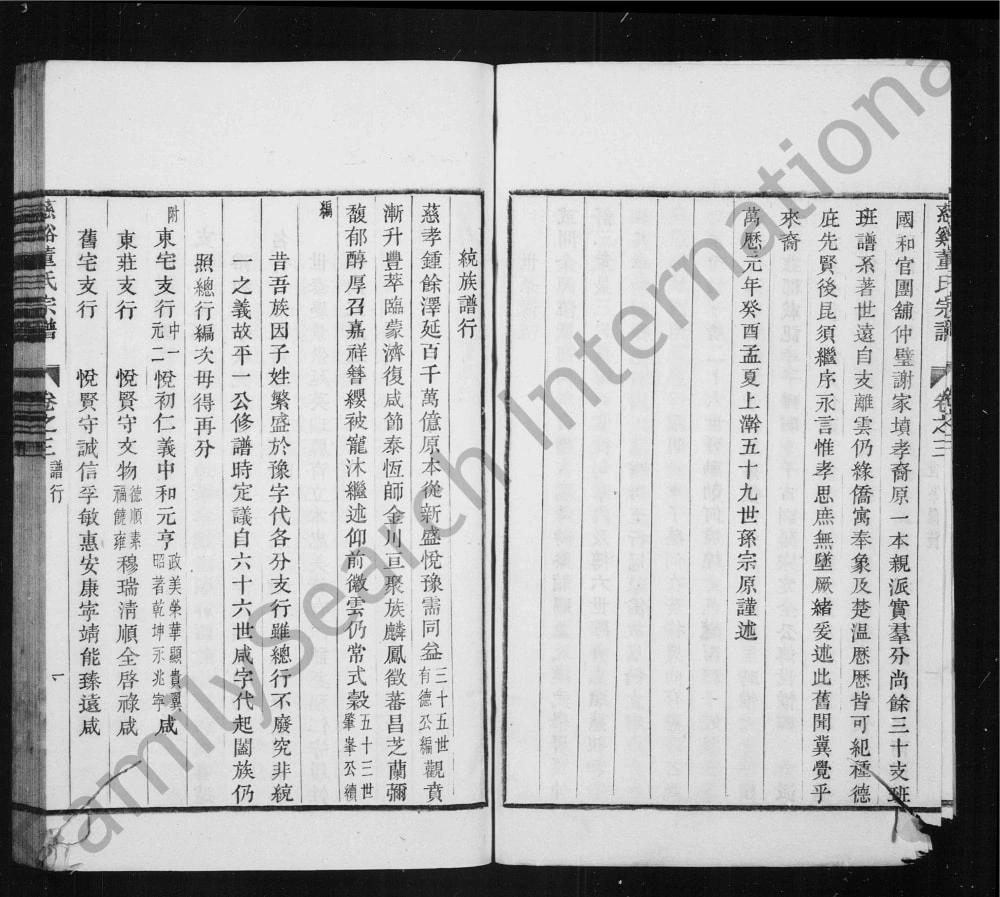 慈谿董氏宗譜 卷之三
國和官團舖仲璧謝家墳孝裔原一本親派實羣分尚餘三十支班
班譜系著世遠自支離雲仍緣僑寓奉象及楚溫歷歷皆可紀種德
庇先賢後昆須繼序永言惟孝思庶無墜厥緒爰述此舊聞冀覺乎
來裔
萬歷元年癸酉孟夏上澣五十九世孫宗原謹述
統族譜行
慈孝鍾餘澤延百千萬億原本從新盛悅豫需同益三十五世有德公編觀賁
漸升豐萃臨蒙濟復咸節泰恆師金川亘聚族麟鳳徵蕃昌芝蘭彌
馥郁醇厚召嘉祥簪纓被寵沐繼述仰前徽雲仍常式穀五十三世肇峯公續
編
昔吾族因子姓繁盛於豫字代各分支行雖總行不廢究非統
一之義故平一公修譜時定議自六十六世咸字代起闔族仍
照總行編次毋得再分
附東宅支行 中一元二悅初仁義中和元亨政美榮華顯貴翼昭著乾坤永兆寧咸
東莊支行 悅賢守文物德順素福饒雍穆瑞清順全啓祿咸
舊宅支行 悅賢守誠信孚敏惠安康寧靖能臻遠咸
慈谿董氏宗譜 卷之三 譜行 一
FamilySearch International